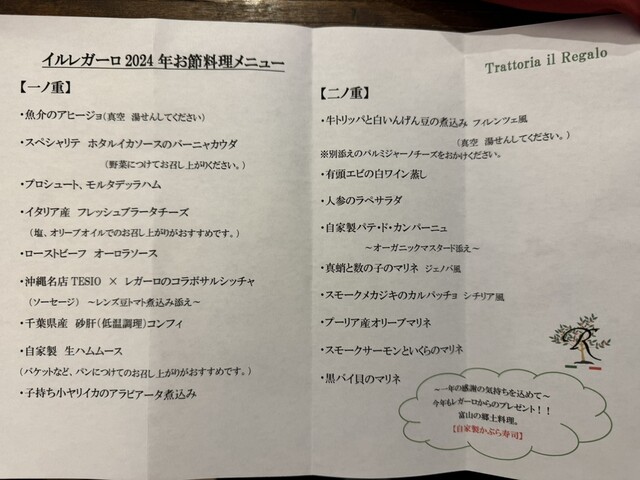 イルレガーロ 2024 年お節料理メニュー
【一ノ重】
・魚介のアヒージョ(真空 湯せんしてください)
・スペシャリテ ホタルイカソースのバーニャカウダ
(野菜につけてお召し上がりください。)
・プロシュート、モルタデッラハム
・イタリア産 フレッシュブラータチーズ
(塩、オリーブオイルでのお召し上がりがおすすめです。)
・ローストビーフ オーロラソース
・沖縄名店 TESIO × レガーロのコラボサルシッチャ
(ソーセージ) ～レンズ豆トマト煮込み添え～
・千葉県産 砂肝(低温調理)コンフィ
・自家製 生ハムムース
(バケットなど、パンにつけてのお召し上がりがおすすめです。)
・子持ち小ヤリイカのアラビアータ煮込み
Trattoria il Regalo
【二ノ重】
・牛トリッパと白いんげん豆の煮込み フィレンツェ風
(真空 湯せんしてください。)
※別添えのパルミジャーノチーズをおかけください。
・有頭エビの白ワイン蒸し
・人参のラペサラダ
・自家製パテ・ド・カンパーニュ
～オーガニックマスタード添え～
・真蛸と数の子のマリネ ジェノバ風
・スモークメカジキのカルパッチョ シチリア風
・プーリア産オリーブマリネ
・スモークサーモンといくらのマリネ
・黒バイ貝のマリネ
R
～一年の感謝の気持ちを込めて～
今年もレガーロからのプレゼント！！
富山の郷土料理。
【自家製かぶら寿司】